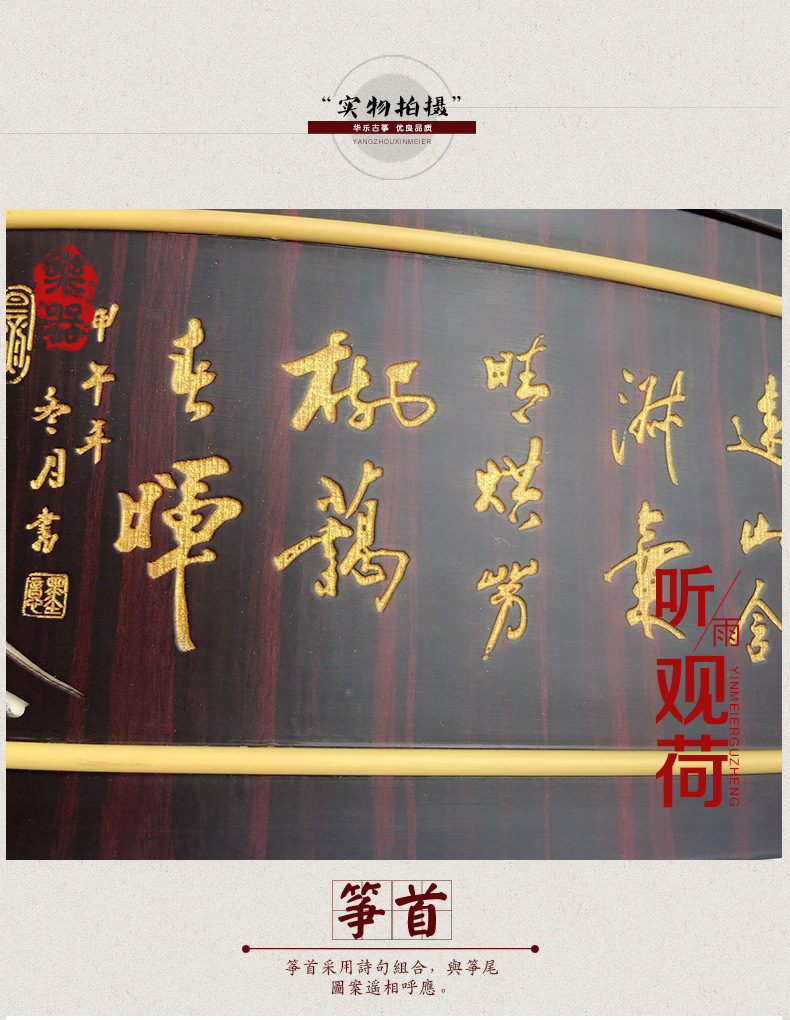 “实物拍摄”
华乐古筝 优良品质
YANGZHOUXINMEIER
樂器
遠山含
淑氣
晴烘芳
樹藹
春暉
甲午年
冬月書
听雨
观荷
YINMEIERGUZHENG
筝首
筝首采用詩句組合，與筝尾
圖案遥相呼應。